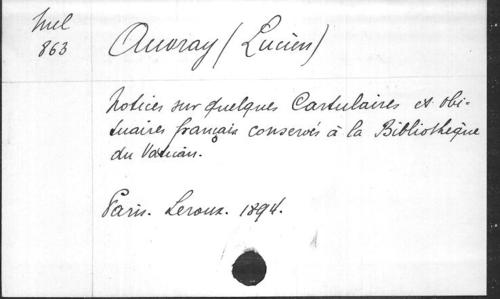 Mel
863
Auvray (Lucien)
Notices sur quelques Cartulaires et obi-
tuaires français conservés à la Bibliothèque
du Vatican.
Paris. Leroux. 1894.